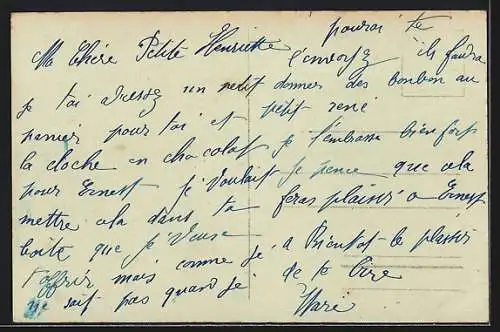 Ma Chère Petite Henriette
je t'ai adressez un petit
panier pour toi et
la cloche en chocolat
pour Ernest je Voulait
mettre cela dans ta
boite que je Veuse
t'offrir mais comme je
ne sait pas quand je
pourai te
l'envoyez ils faudra
donner des bonbon au
petit rené
je t'embrasse bien fort
je pence que cela
feras plaisir a Ernest
a Bientot le plaisir
de te lire